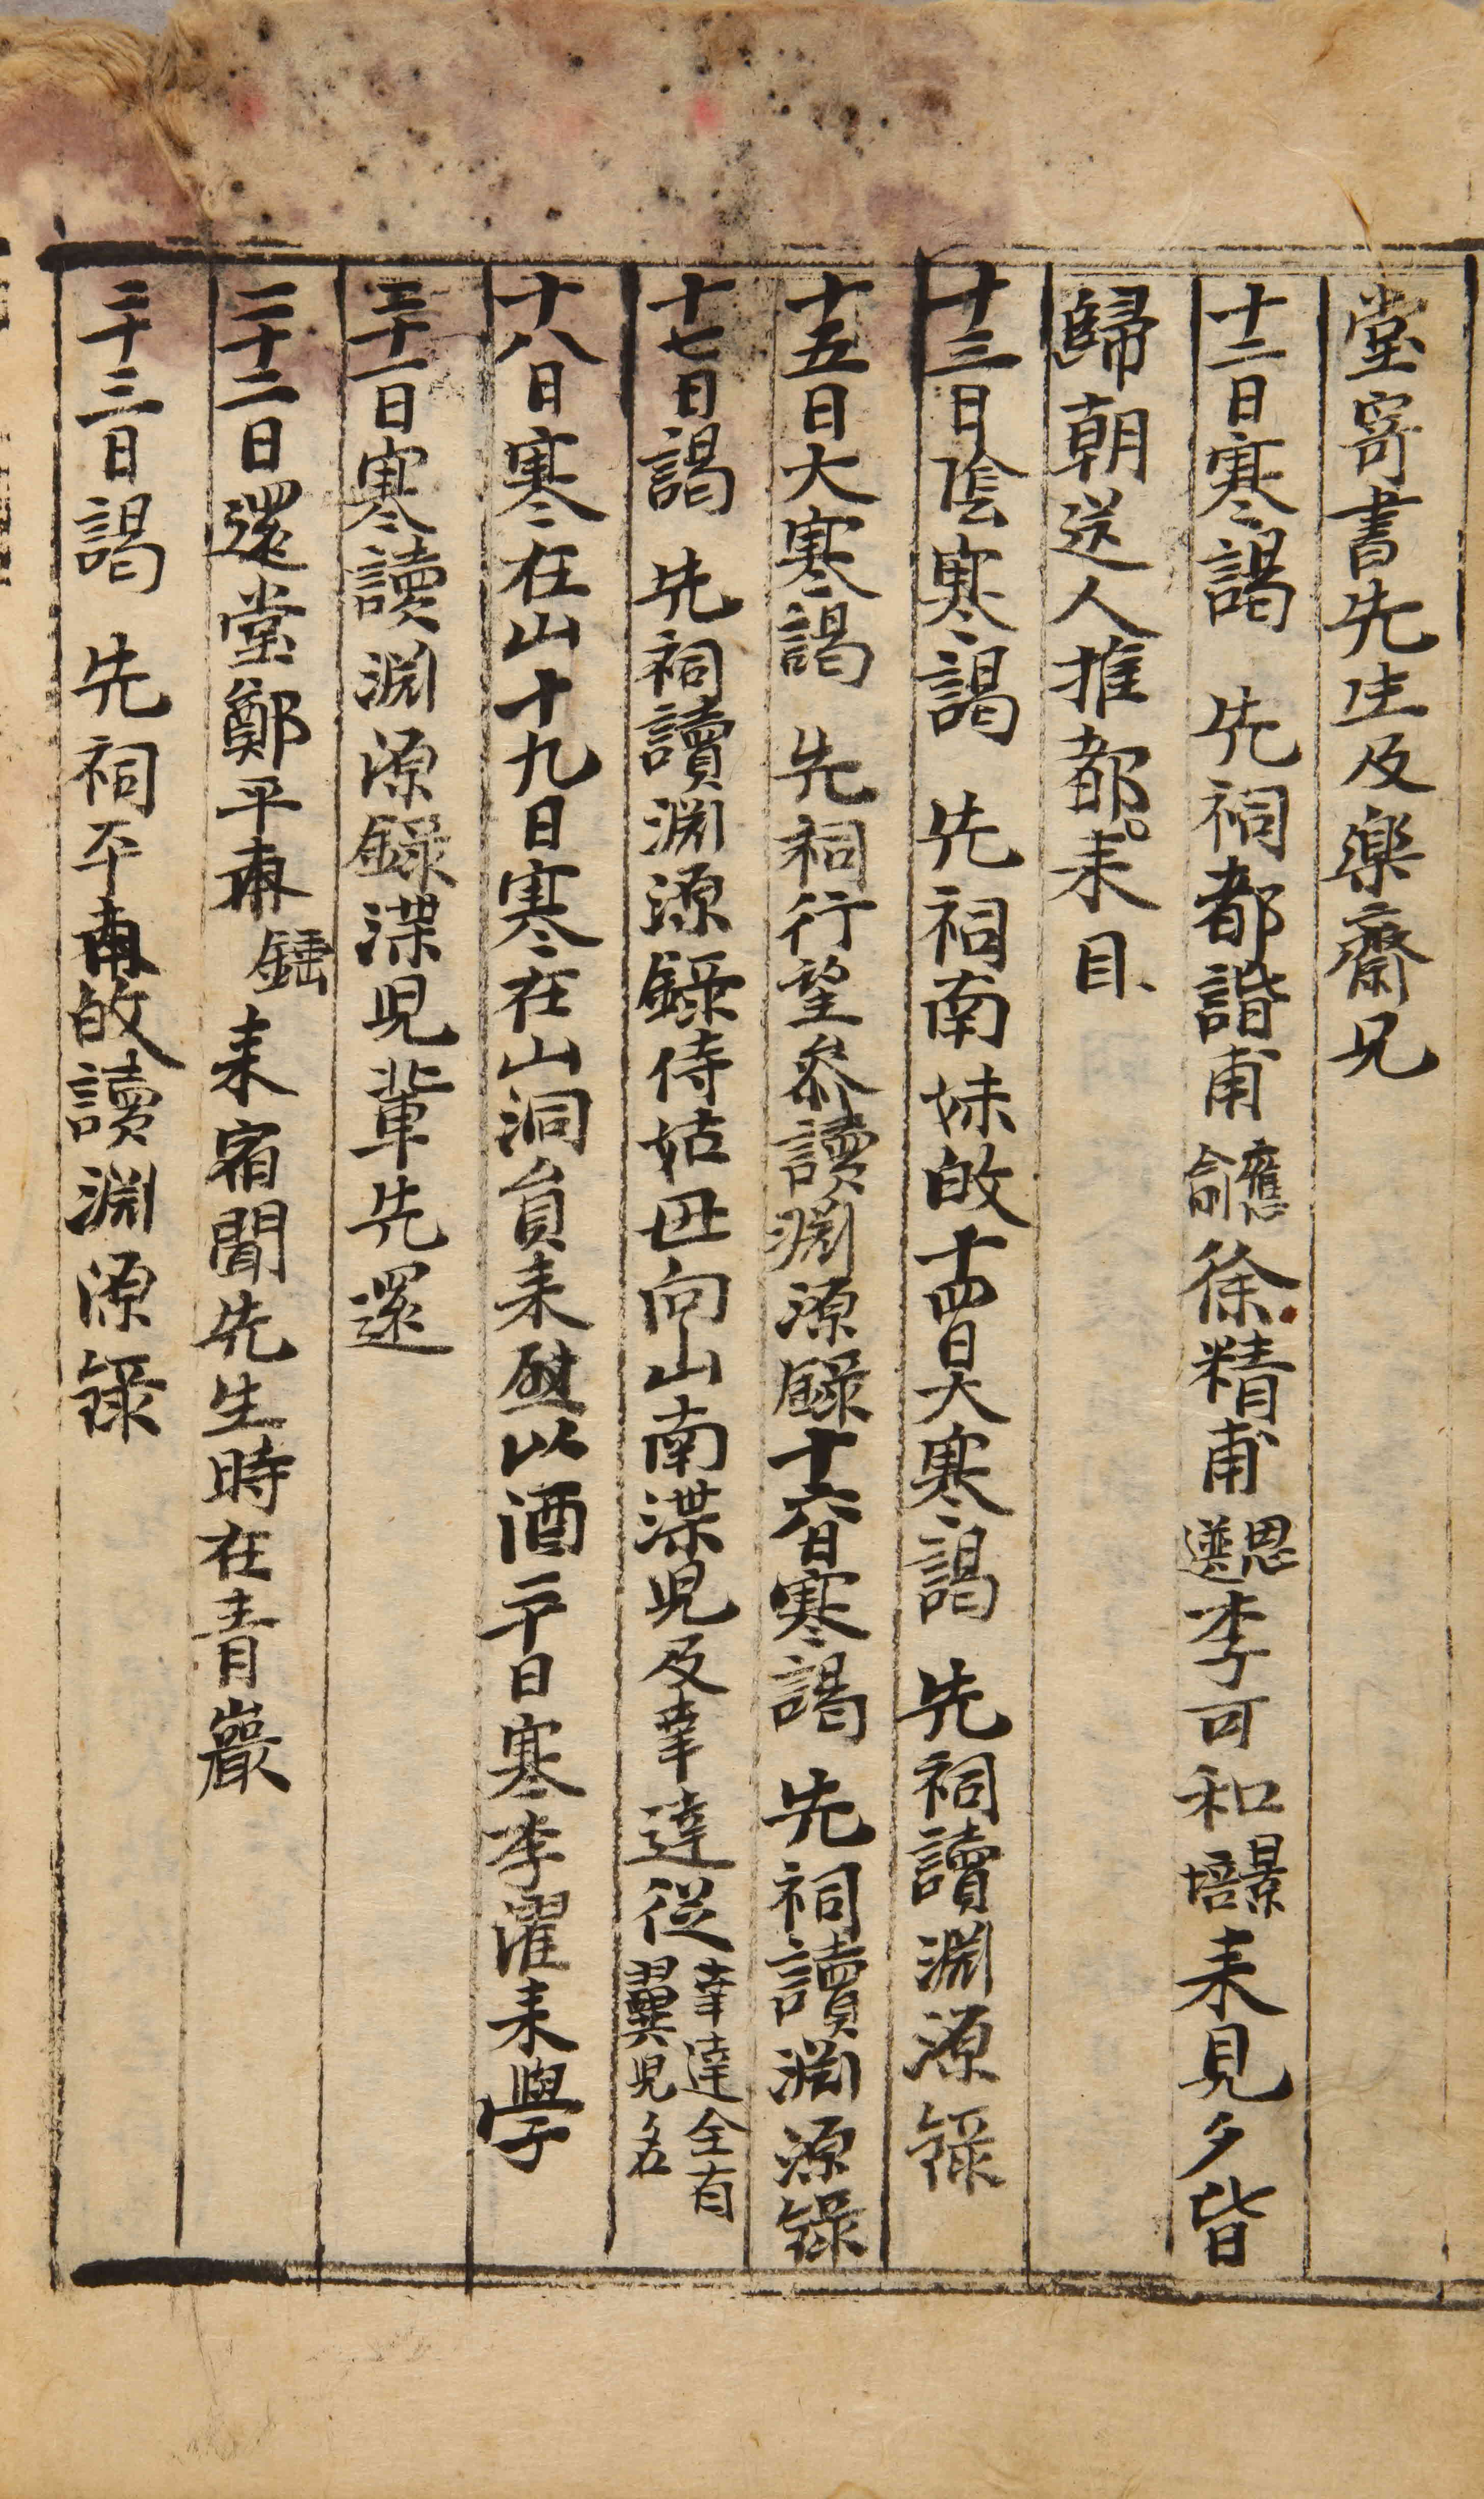 堂寄書先生及樂齋兄
十二日寒謁 先祠都諧甫應兪徐精甫思遴李可和景培來見夕皆
歸朝送人推都來目
十三日陰寒謁 先祠南妹㱕十四日大寒謁 先祠讀淵源錄
十五日大寒謁 先祠行望參讀淵源錄十六日寒謁 先祠讀淵源錄
十七日謁 先祠讀淵源錄侍姑母向山南渫兒及幸達從幸達全有翼兒名
十八日寒在山十九日寒在山洞員來慰以酒二十日寒李濯來學
二十一日寒讀淵源錄渫兒輩先還
二十二日還堂鄭平甫來宿聞先生時在青巖
二十三日謁 先祠平甫㱕讀淵源錄